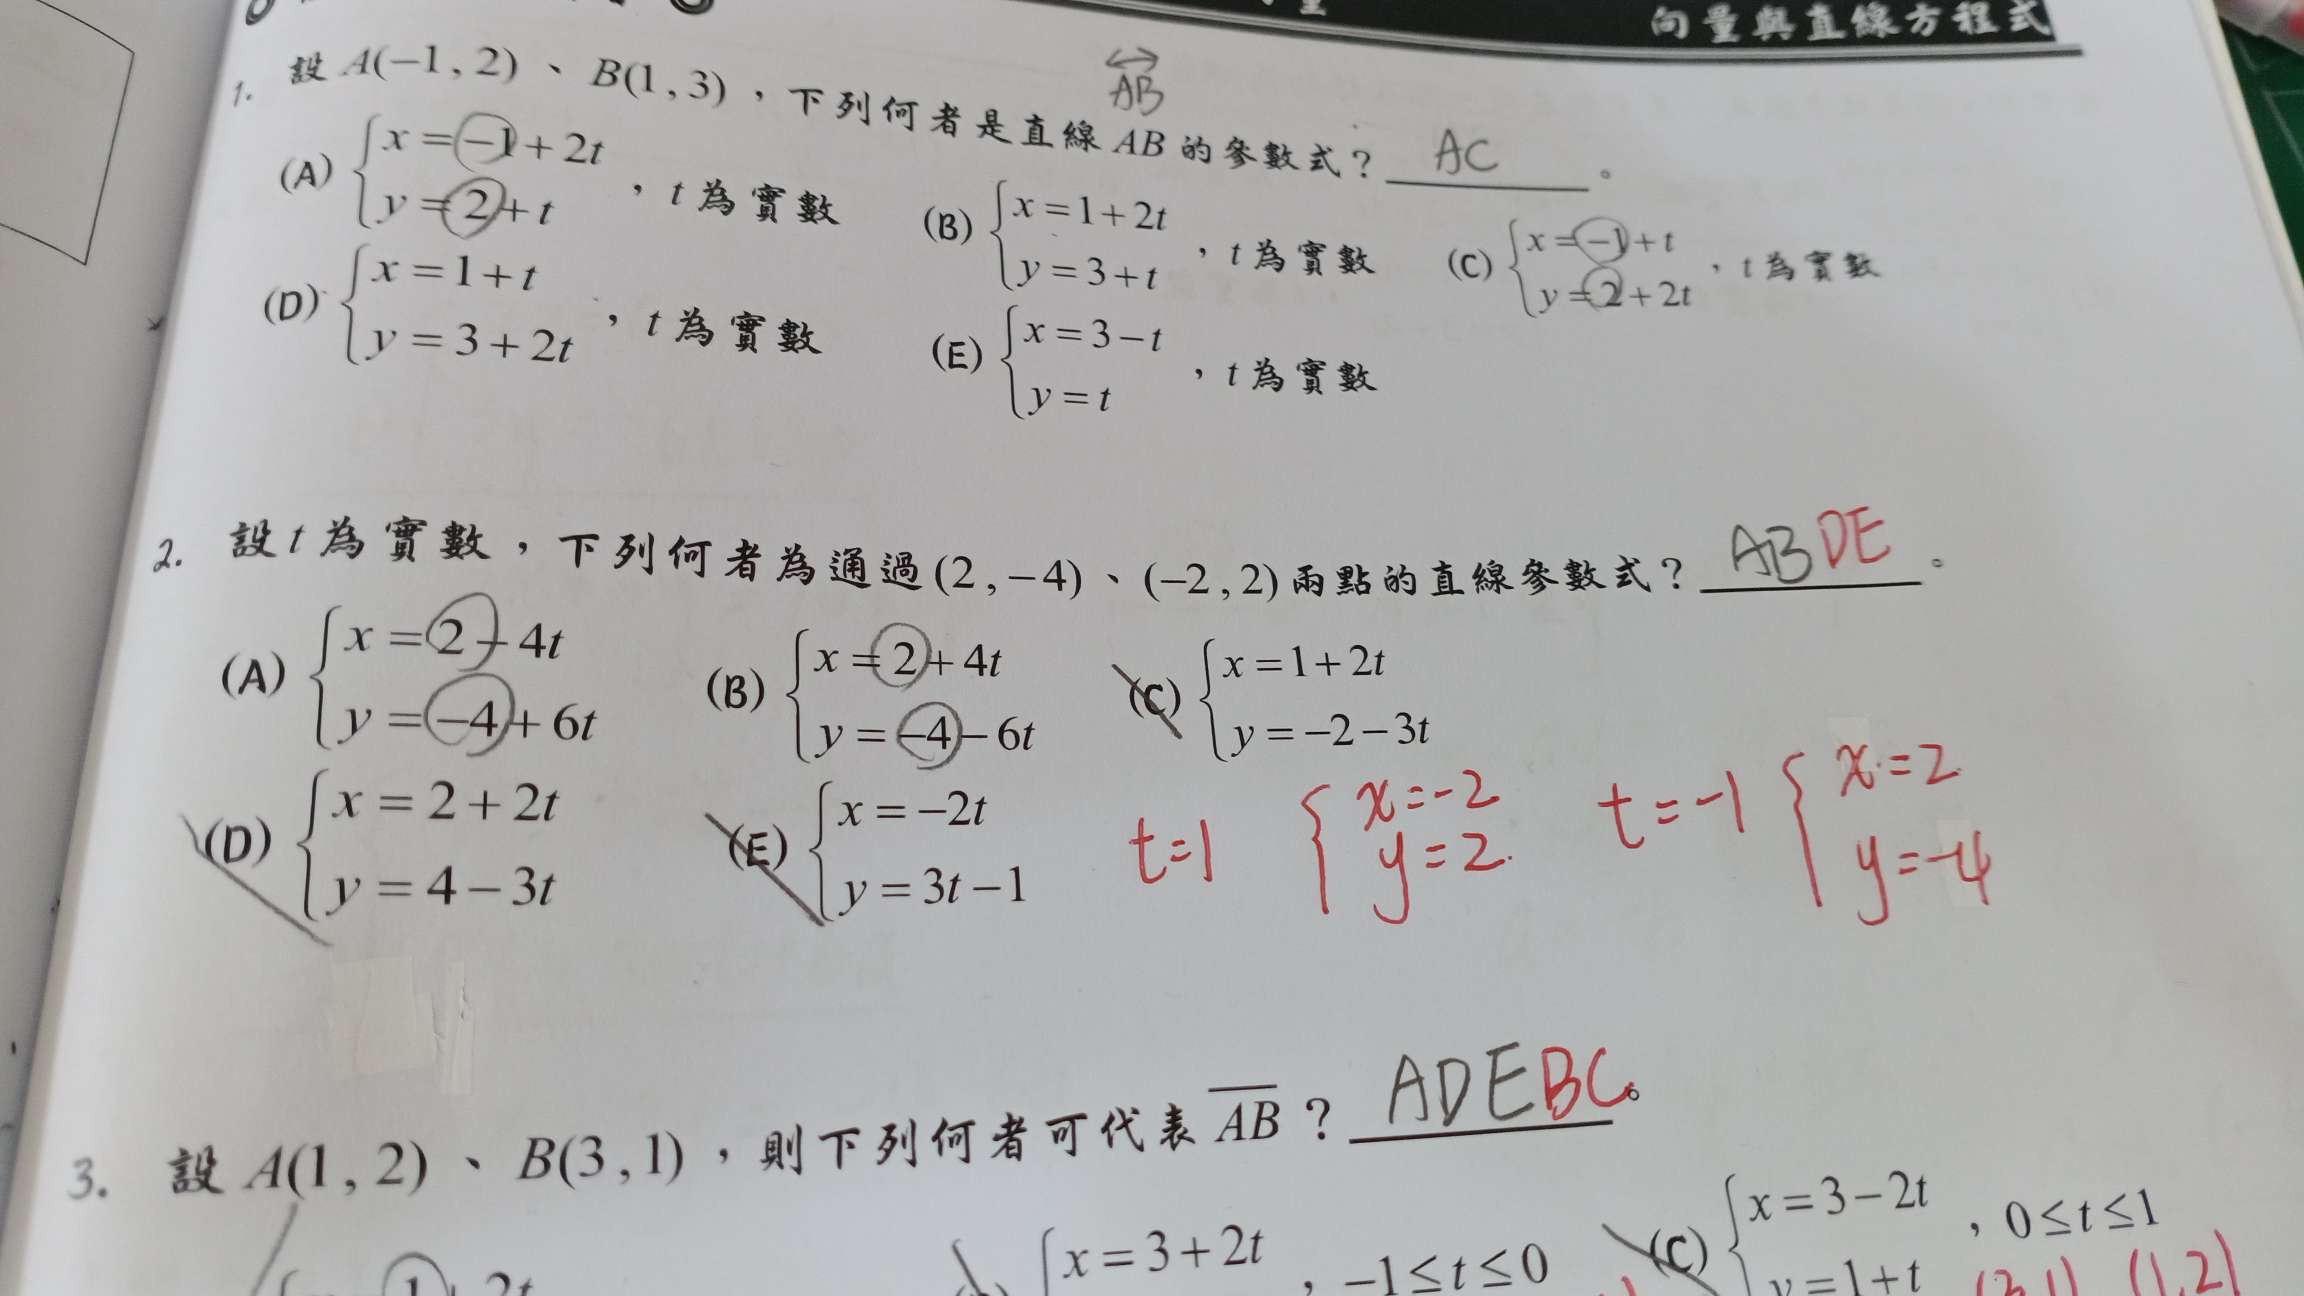 向量與直線方程式
AB
1. 設 A(−1,2)、B(1,3),下列何者是直線 AB 的參數式? AC 。
(A) { x=−1+2t
y=2+t ,t 為實數
(B) { x=1+2t
y=3+t ,t 為實數
(C) { x=−1+t
y=2+2t ,t 為實數
(D) { x=1+t
y=3+2t ,t 為實數
(E) { x=3−t
y=t ,t 為實數
2. 設 t 為實數,下列何者為通過 (2,−4)、(−2,2) 兩點的直線參數式? ABDE 。
(A) { x=2−4t
y=−4+6t
(B) { x=2+4t
y=−4−6t
(C) { x=1+2t
y=−2−3t
(D) { x=2+2t
y=4−3t
(E) { x=−2t
y=3t−1
t=1 { x=-2
y=2.
t=-1 { x=2
y=-4
3. 設 A(1,2)、B(3,1),則下列何者可代表 AB? ADEBC。
x=3+2t
,−1≤t≤0
(C) { x=3−2t
y=1+t ,0≤t≤1
(1,2)